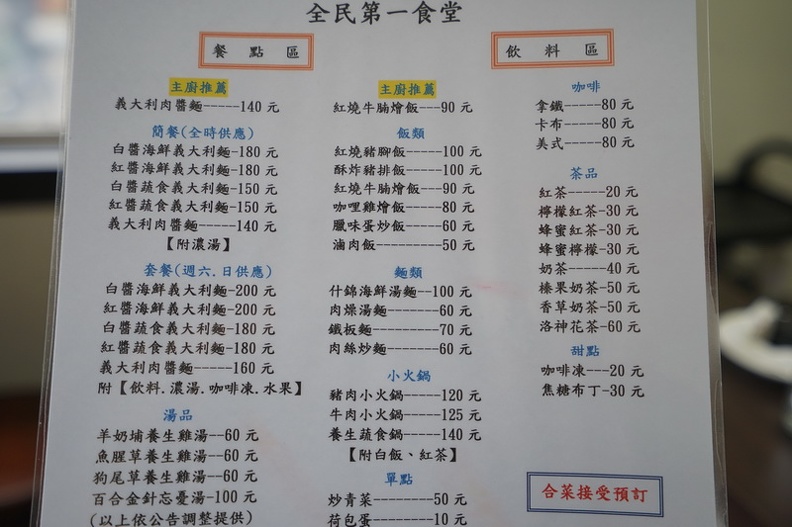 全民第一食堂
餐點區
主廚推薦
義大利肉醬麵-----140 元
簡餐(全時供應)
白醬海鮮義大利麵-180 元
紅醬海鮮義大利麵-180 元
白醬蔬食義大利麵-150 元
紅醬蔬食義大利麵-150 元
義大利肉醬麵-----140 元
【附濃湯】
套餐(週六.日供應)
白醬海鮮義大利麵-200 元
紅醬海鮮義大利麵-200 元
白醬蔬食義大利麵-180 元
紅醬蔬食義大利麵-180 元
義大利肉醬麵-----160 元
附【飲料.濃湯.咖啡凍.水果】
湯品
羊奶埔養生雞湯--60 元
魚腥草養生雞湯--60 元
狗尾草養生雞湯--60 元
百合金針忘憂湯-100 元
(以上依公告調整提供)
主廚推薦
紅燒牛腩燴飯---90 元
飯類
紅燒豬腳飯-----100 元
酥炸豬排飯-----100 元
紅燒牛腩燴飯---90 元
咖哩雞燴飯-----80 元
臘味蛋炒飯-----60 元
滷肉飯----------50 元
麵類
什錦海鮮湯麵--100 元
肉燥湯麵-------60 元
鐵板麵---------70 元
肉絲炒麵-------60 元
小火鍋
豬肉小火鍋----120 元
牛肉小火鍋----125 元
養生蔬食鍋----140 元
【附白飯、紅茶】
單點
炒青菜---------50 元
荷包蛋---------10 元
飲料區
咖啡
拿鐵-----80 元
卡布-----80 元
美式-----80 元
茶品
紅茶-----20 元
檸檬紅茶-30 元
蜂蜜紅茶-30 元
蜂蜜檸檬-30 元
奶茶-----40 元
榛果奶茶-50 元
香草奶茶-50 元
洛神花茶-60 元
甜點
咖啡凍---20 元
焦糖布丁-30 元
合菜接受預訂